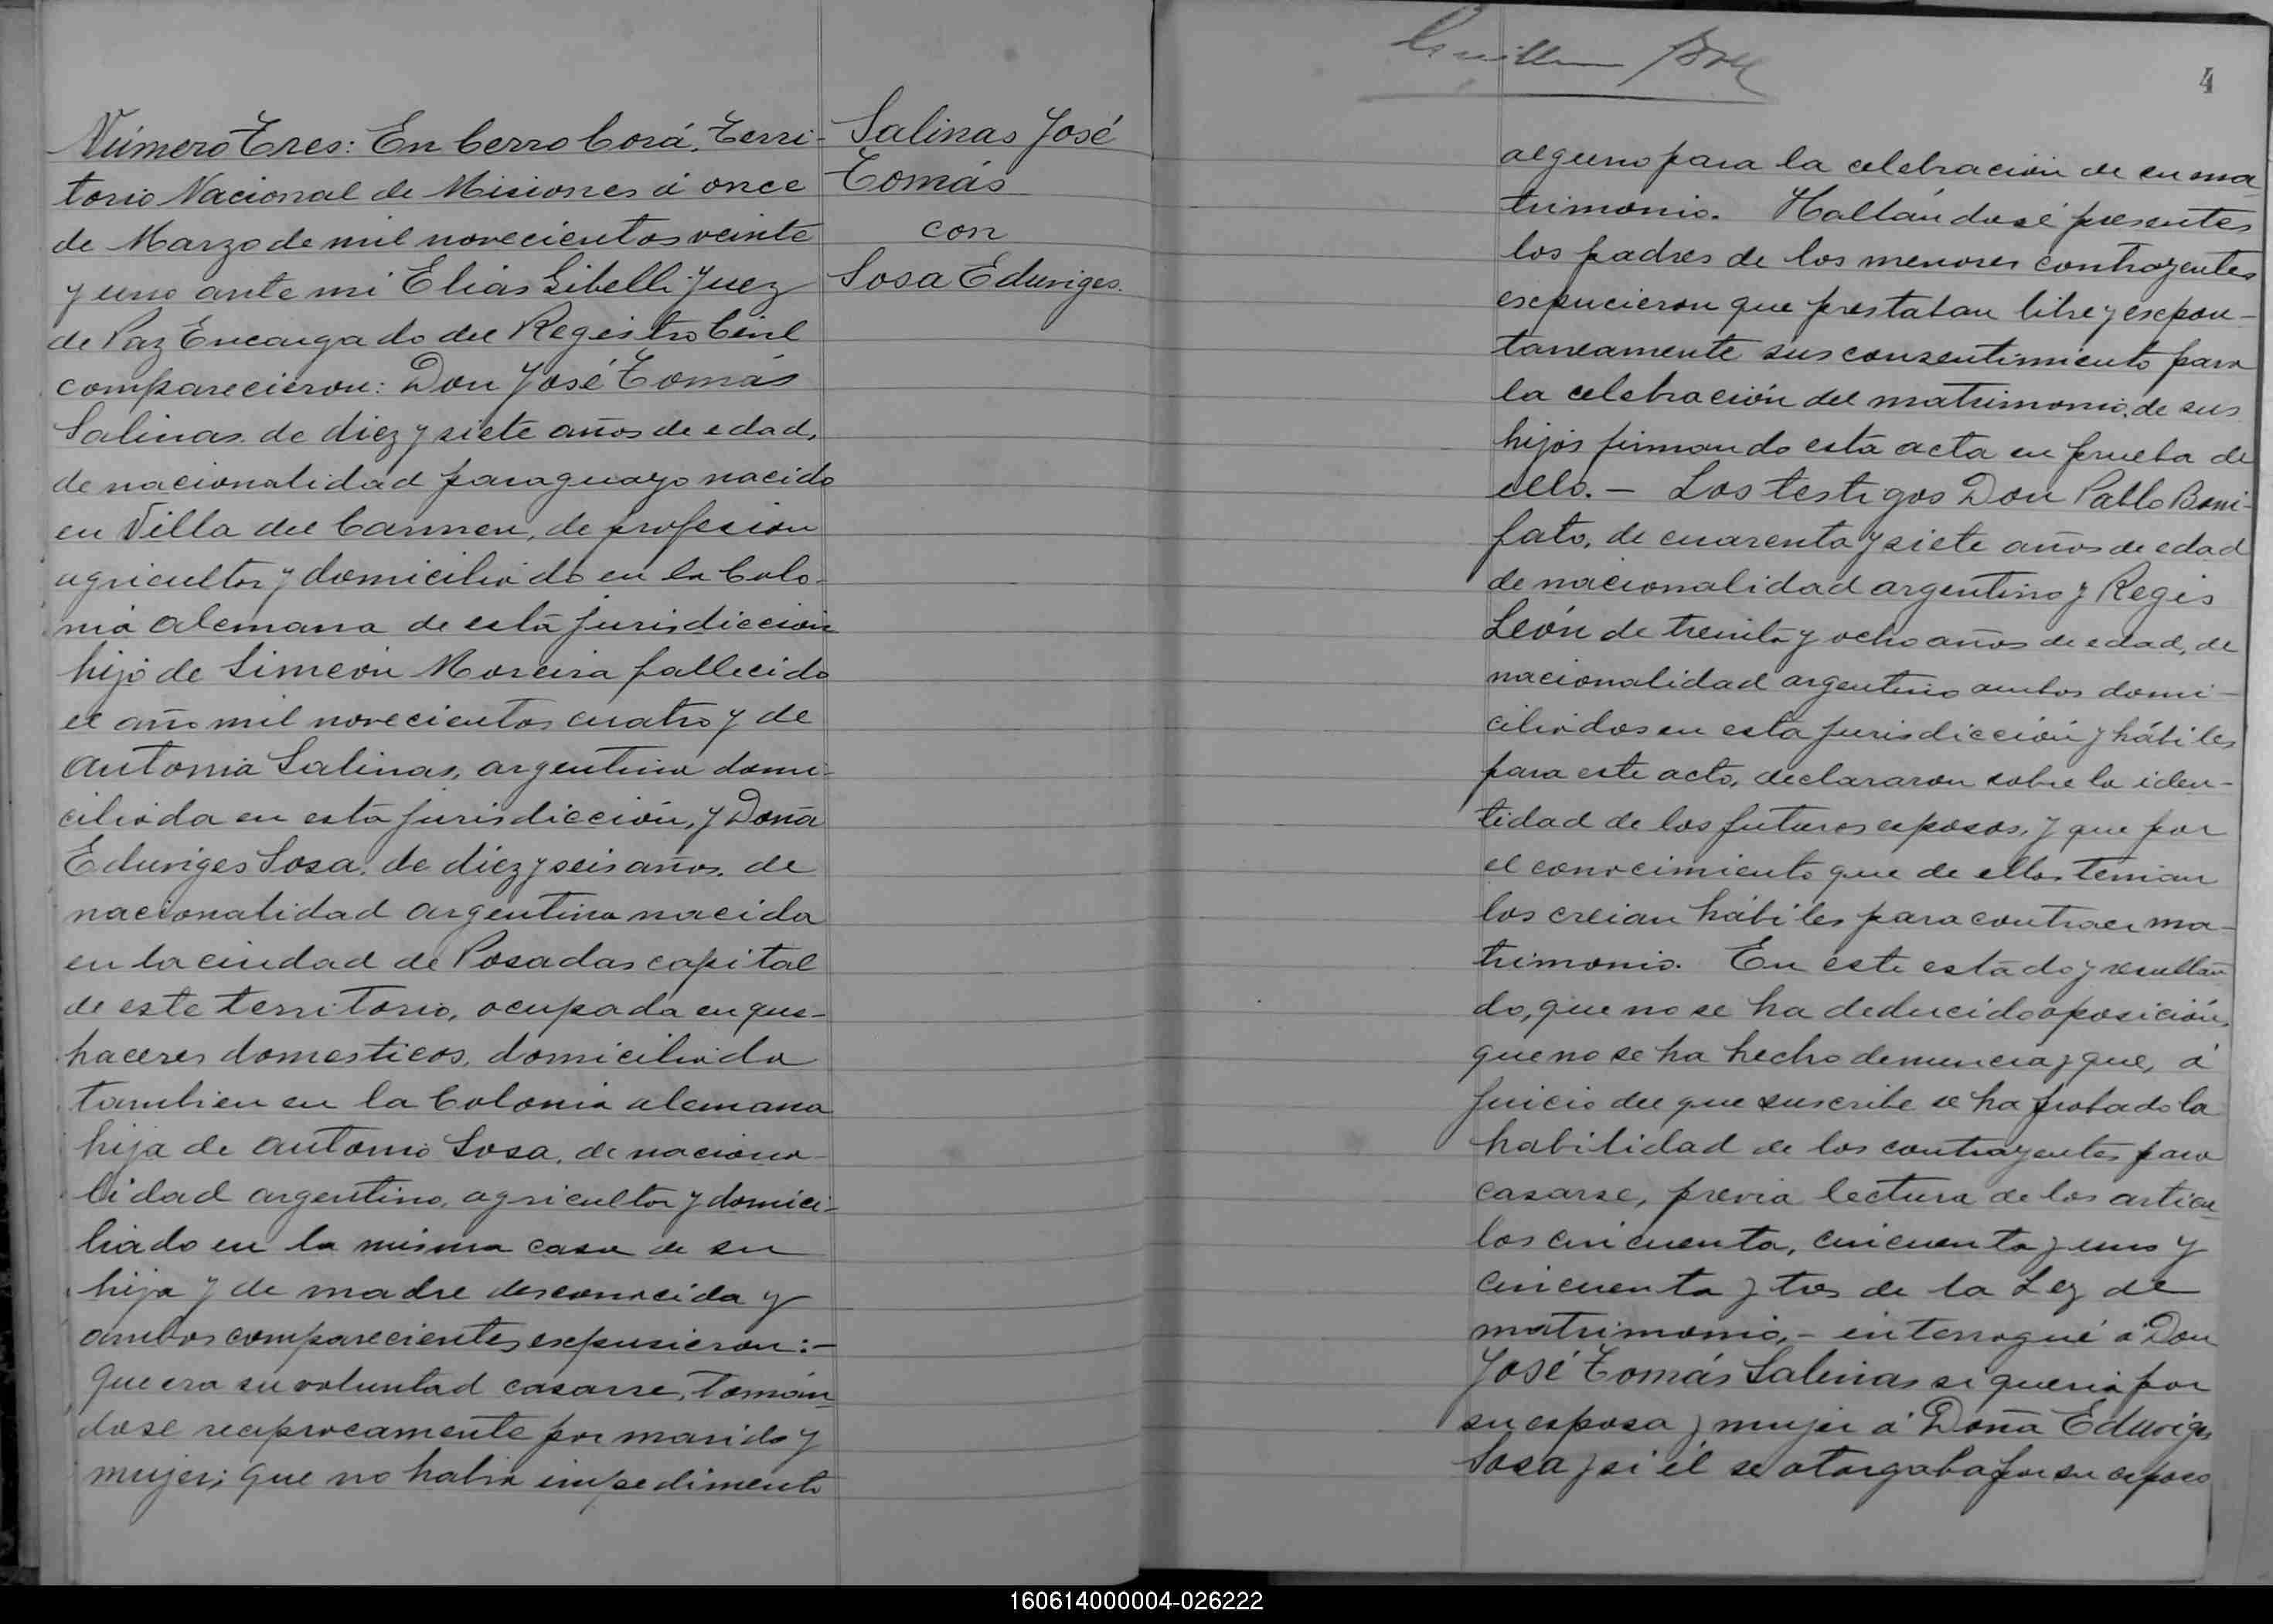 Número Tres: En Cerro Corá, Terri-
torio Nacional de Misiones á once
de Marzo de mil novecientos veinte
y uno ante mi Elias Gibelli Juez
de Paz Encargado del Registro Civil
comparecieron: Don José Tomás
Salinas de diez y siete años de edad,
de nacionalidad paraguayo nacido
en Villa del Carmen, de profesion
agricultor y domiciliado en la Colo-
nia alemana de esta jurisdiccion
hijo de Simeón Moreira fallecido
el año mil novecientos cuatro y de
Antonia Salinas, argentina domi-
ciliada en esta jurisdicción, y Doña
Eduviges Sosa, de diez y seis años, de
nacionalidad argentina nacida
en la ciudad de Posadas capital
de este territorio, ocupada en que-
haceres domesticos, domiciliada
tambien en la Colonia alemana
hija de Antonio Sosa, de naciona-
lidad argentino, agricultor y domici-
liado en la misma casa de su
hija y de madre desconocida y
ambos comparecientes expusieron:-
Que era su voluntad casarse, toman-
dose reciprocamente por marido y
mujer; que no habia impedimento
Salinas José
Tomás
con
Sosa Eduviges.
4
alguno para la celebración de su ma-
trimonio. Hallándosé presentes
los padres de los menores contrayentes
expucieron que prestaban libre y espon-
taneamente sus consentimiento para
la celebración del matrimonio de sus
hijos firmando esta acta en prueba de
ello. - Los testigos Don Pablo Boni-
fato, de cuarenta y siete años de edad
de nacionalidad argentino y Regis
León de treinta y ocho años de edad, de
nacionalidad argentino ambos domi-
ciliados en esta jurisdicción y hábiles
para este acto, declararon sobre la iden-
tidad de los futuros esposos, y que por
el conocimiento que de ellos tenian
los creian hábiles para contraer ma-
trimonio. En este estado y resultan-
do, que no se ha deducido oposición,
que no se ha hecho denuncia y que, á
juicio del que suscribe se ha probado la
habilidad de los contrayentes para
casarse, previa lectura de los articu-
los cincuenta, cincuenta y uno y
cincuenta y tres de la Ley de
matrimonio, - interrogué á Don
José Tomás Salinas si queria por
su esposa y mujer á Doña Eduviges
Sosa y si él se otorgaba por su esposo
160614000004-026222